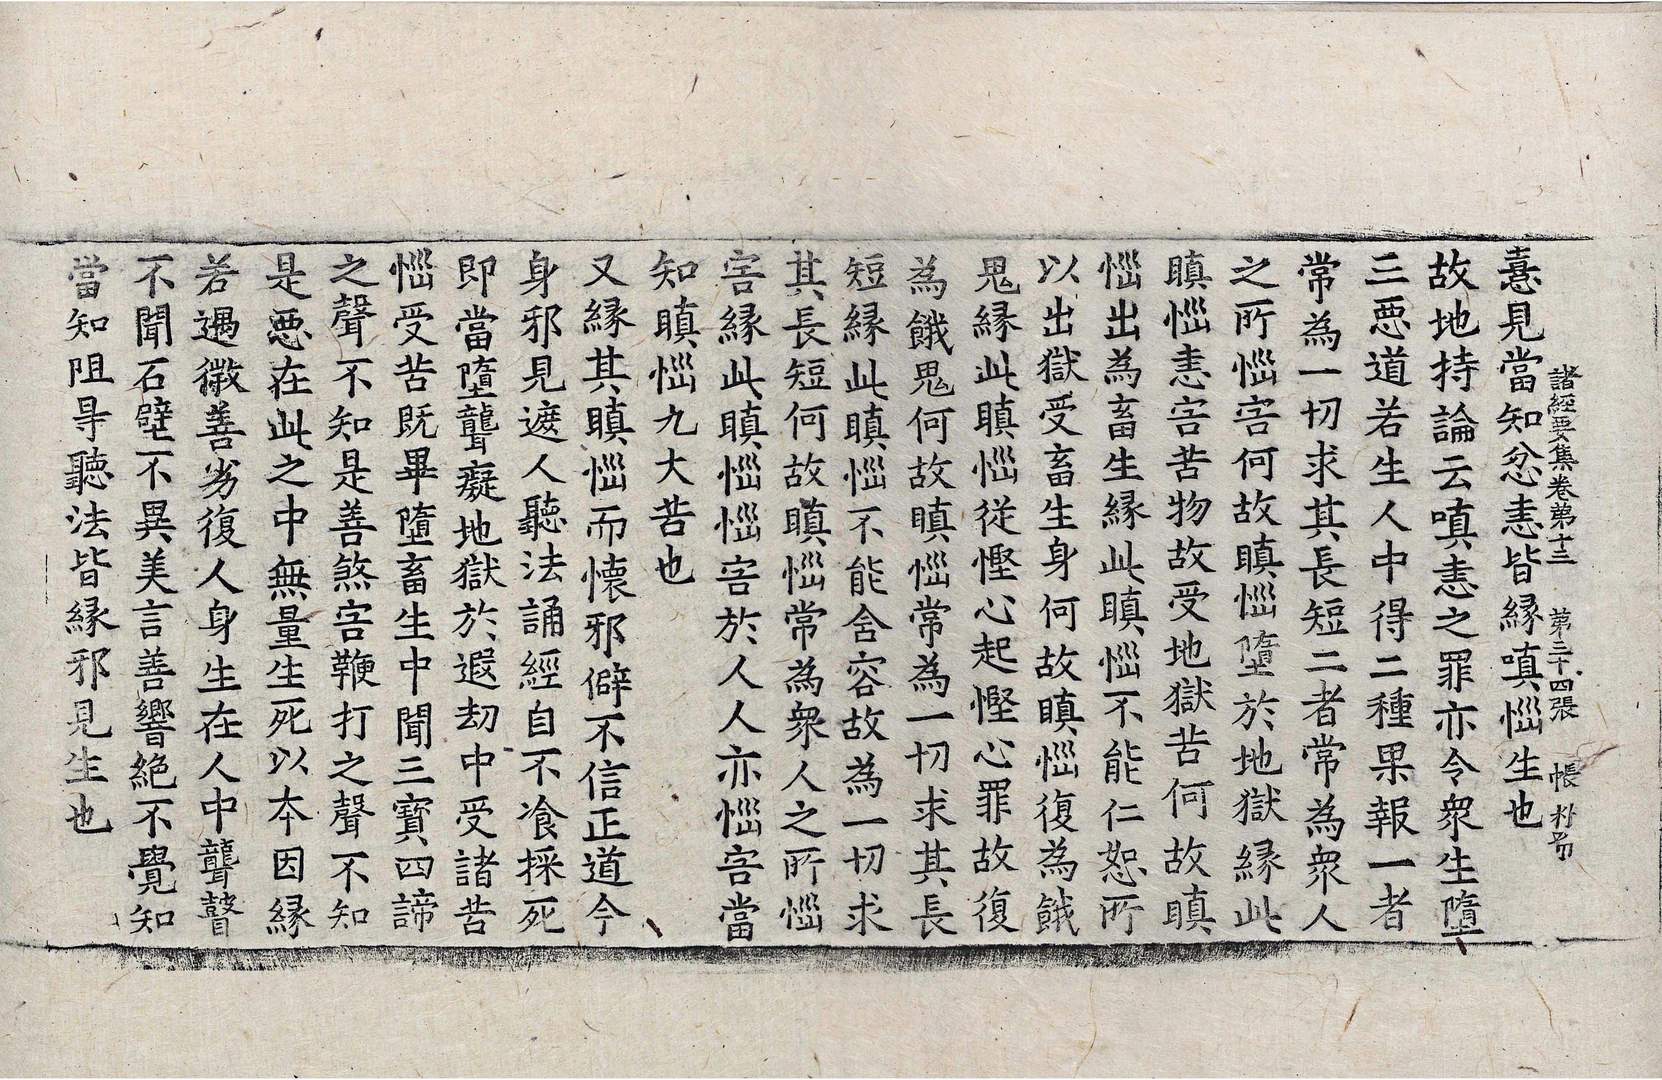 諸經要集卷第十三 第三十四張 帳
憙見當知忿恚皆緣嗔惱生也
故地持論云嗔恚之罪亦令衆生墮
三惡道若生人中得二種果報一者
常為一切求其長短二者常為衆人
之所惱害何故瞋惱墮於地獄緣此
瞋惱恚害苦物故受地獄苦何故瞋
惱出為畜生緣此瞋惱不能仁恕所
以出獄受畜生身何故瞋惱復為餓
鬼緣此瞋惱從慳心起慳心罪故復
為餓鬼何故瞋惱常為一切求其長
短緣此瞋惱不能含容故為一切求
其長短何故瞋惱常為衆人之所惱
害緣此瞋惱惱害於人人亦惱害當
知瞋惱九大苦也
又緣其瞋惱而懷邪僻不信正道今
身邪見遮人聽法誦經自不飡採死
即當墮聾癡地獄於遐劫中受諸苦
惱受苦既畢墮畜生中聞三寶四諦
之聲不知是善煞害鞭打之聲不知
是惡在此之中無量生死以本因緣
若遇微善劣復人身生在人中聾瞽
不聞石壁不異美言善響絕不覺知
當知阻㝵聽法皆緣邪見生也